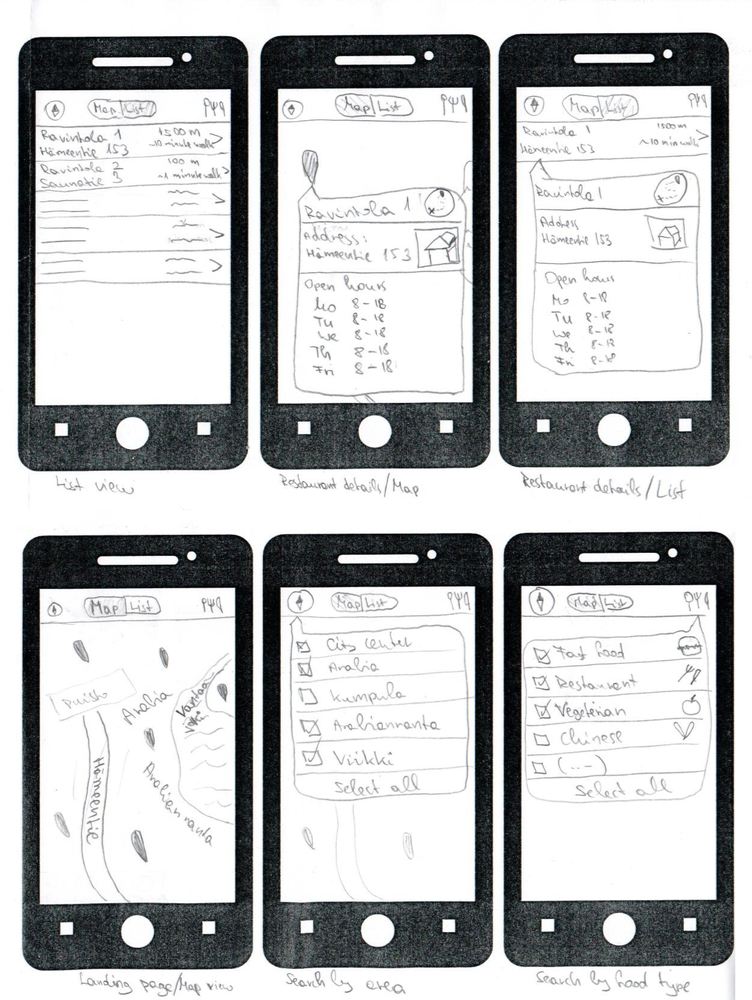 Map List
Ravintola 1 1500 m
Hämeentie 153 ~10 minute walk
Ravintola 2 100 m
Saunatie 3 ~1 minute walk
List view
Map List
Ravintola 1
Address:
Hämeentie 153
Open hours
Mo 8-18
Tu 8-18
We 8-18
Th 8-18
Fri 8-18
Restaurant details/Map
Map List
Ravintola 1 1500 m
Hämeentie 153 ~10 min walk
Ravintola 1
Address
Hämeentie 153
Open hours
Mo 8-18
Tu 8-18
We 8-18
Th 8-18
Fr 8-18
Restaurant details/List
Map List
Puisto
Arabia
Hämeentie
Arabianranta
Landing page/Map view
Map List
City center
Arabia
Kumpula
Arabianranta
Viikki
Select all
Search by area
Map List
Fast food
Restaurant
Vegeterian
Chinese
(...)
Select all
Search by food type